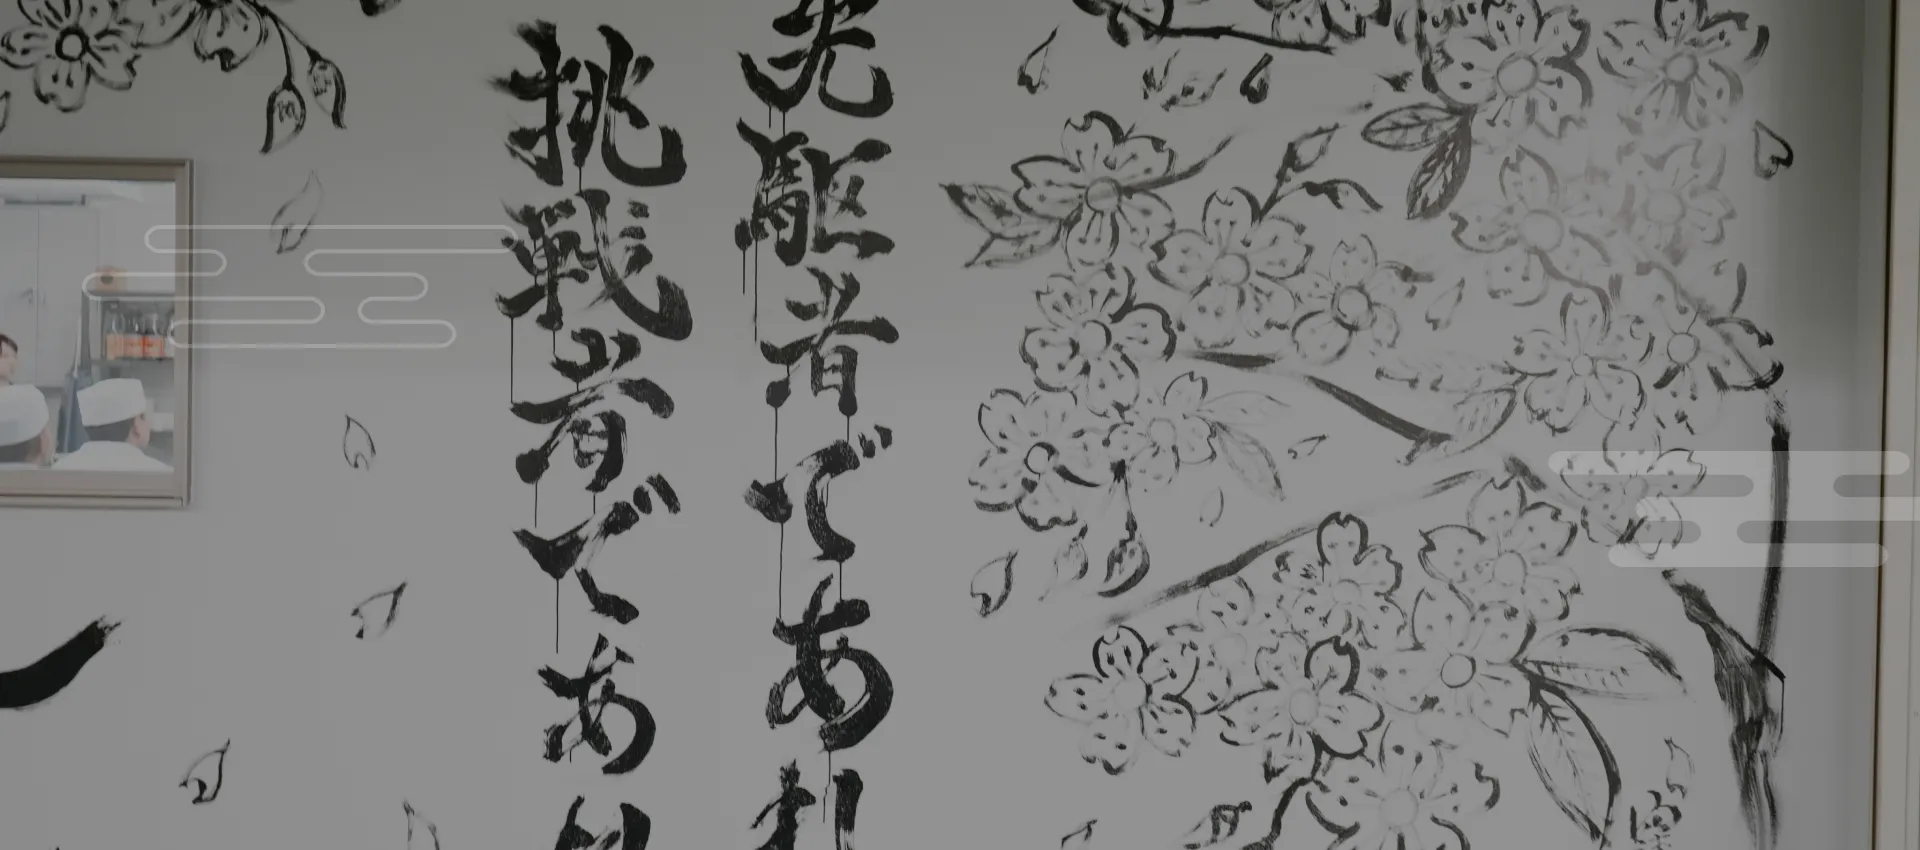 先駆者であれ
挑戦者であれ